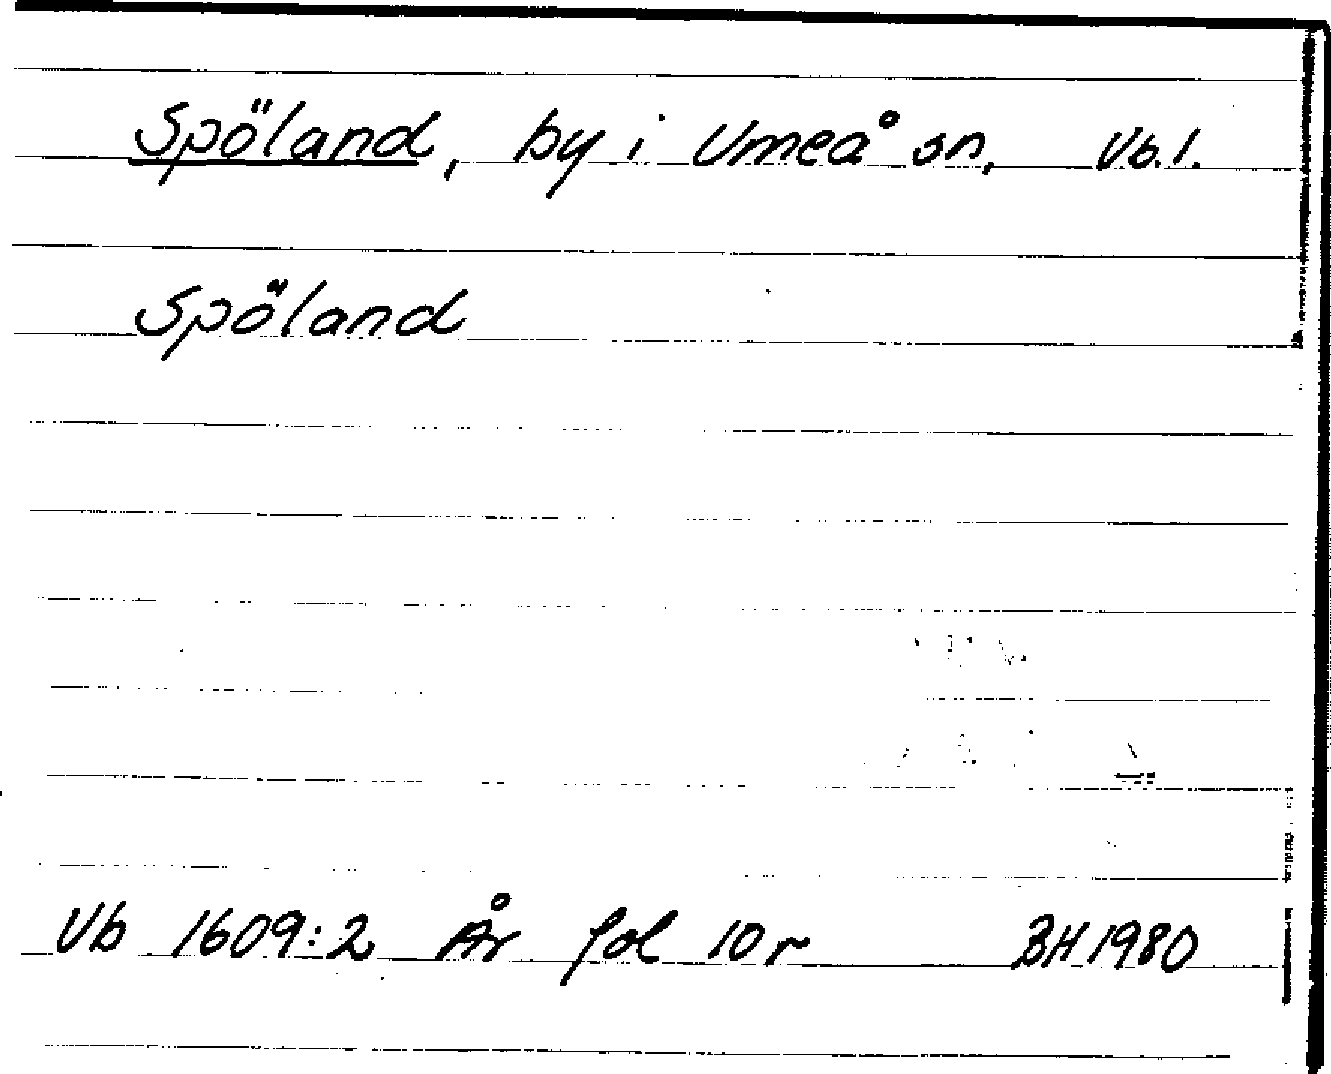 Spöland, by i Umeå sn, Vb.l.
Spöland
Vb 1609:2 År fol 10 r BH 1980